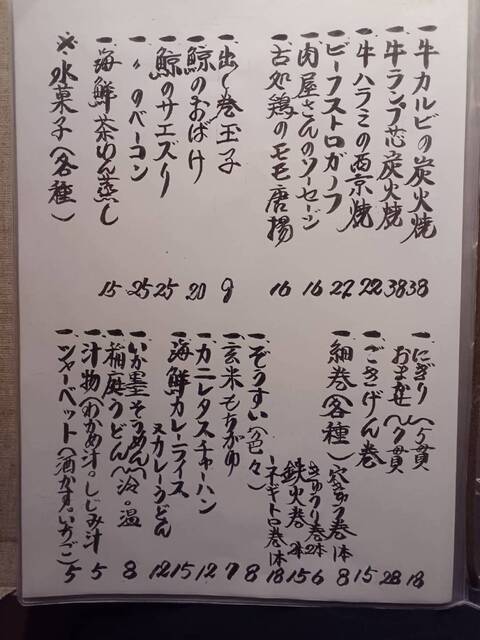 一牛カルビの炭火焼 38
一牛ランプ芯炭火焼 38
一牛ハラミの西京焼 22
一ビーフストロガノフ 22
一肉屋さんのソーセージ 16
一古処鶏のモモ唐揚 16
一出し巻玉子 9
一鯨のおばけ 20
一鯨のサエズリ 25
一〃のベーコン 25
一海鮮茶わん蒸し 15
※水菓子(各種)
一にぎり(5貫 18
おまかせ(7貫 28
一ごきげん巻 15
一細巻(各種)
穴きゅう巻1本 8
きゅうり巻2本 6
鉄火巻2本 15
ネギトロ巻1本 18
一ぞうすい(色々) 8
一玄米もちがゆ 7
一カニレタスチャーハン 12
一海鮮カレーライス 15
又カレーうどん 12
一いか墨そうめん
一稲庭うどん(冷・温 8
一汁物(わかめ汁・しじみ汁 5
一シャーベット(酒かす・いちご) 5